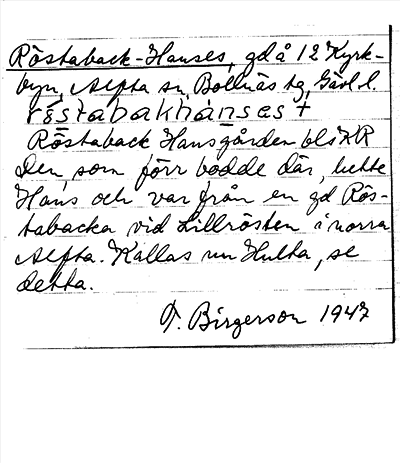 Röstaback-Hanses, gd å 12 Kyrk-
byn, Alfta sn, Bollnäs tg, Gävl. l.
röstabakhànses+
Röstaback Hansgården bl
Den, som förr bodde där, hette
Hans och var från en gd Rös-
tabacka vid Lillrösten i norra
Alfta. Kallas nu Hulta, se
detta.
T. Birgerson 1947